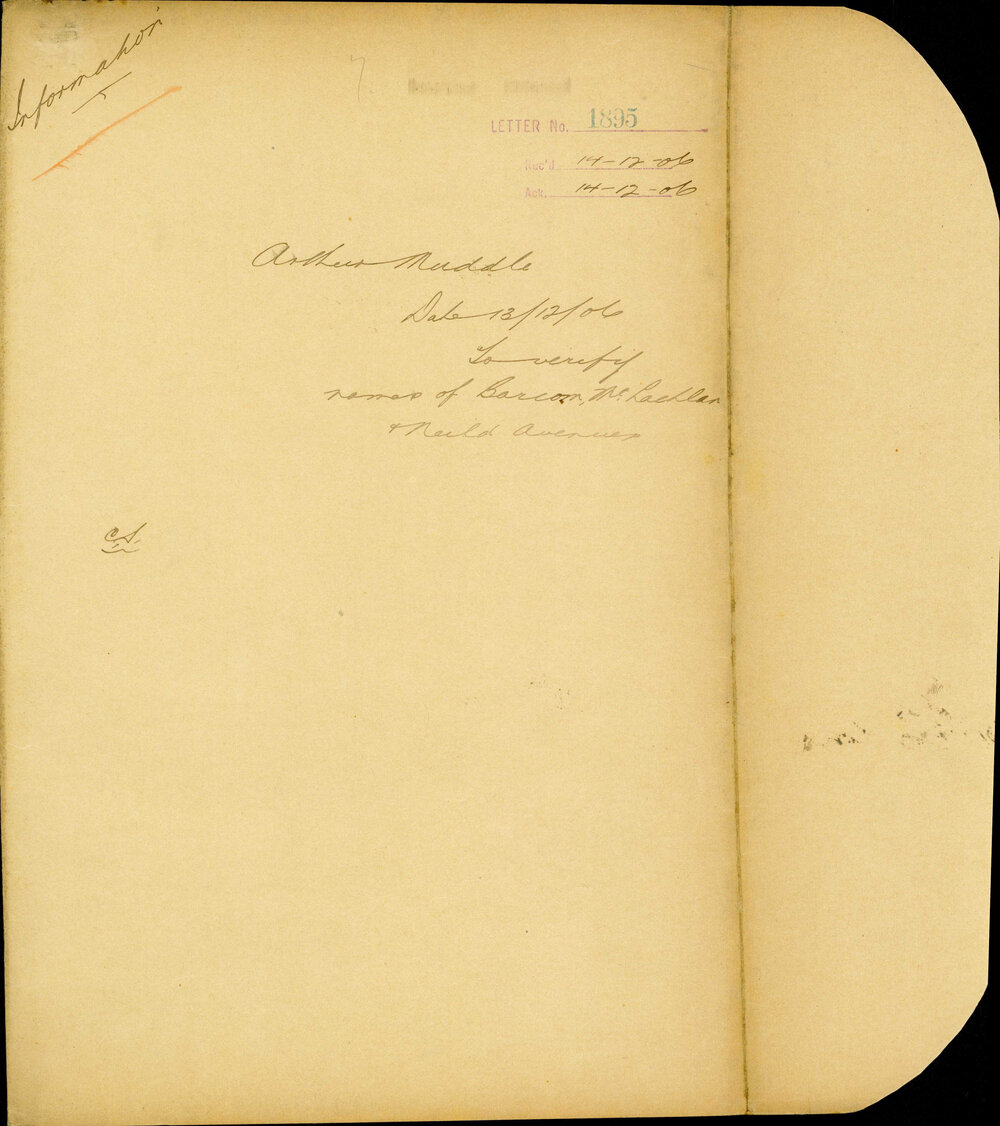 Information
LETTER No. 1895
Rec'd 14-12-06
Ack. 14-12-06
Arthur Muddle
Date 13/12/06
To verify
names of Barcom, McLachlan
& Neild Avenues
C.S.